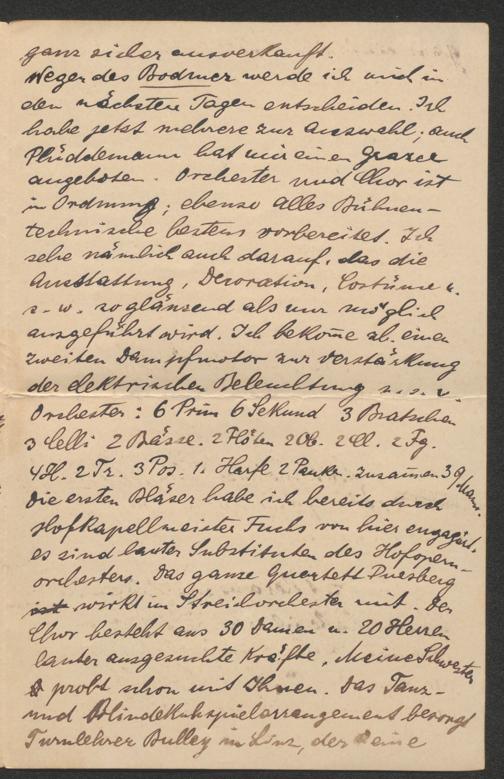 ganz sicher ausverkauft.
Wegen des Bodmer werde ich mich in
den nächsten Tagen entscheiden. Ich
habe jetzt mehrere zur Auswahl, auch
Plüddemann hat mir einen
angeboten. Orchester und Chor ist
in Ordnung, ebenso alles Bühnen-
technische bestens vorbereitet. Ich
sehe nämlich auch darauf, das die
Ausstattung, Decoration, Costüme u.
s. w. so glänzend als nur möglich
ausgeführt wird. Ich bekom̄e einen
zweiten Dampfmotor zur Verstärkung
der elektrischen Beleuchtung
Orchester: 6 Prim 6 Sekund 3 Bratschen
3 Celli 2 Bässe. 2 Flöten 2 Ob. 2 Cl. 2 Fg.
4 H. 2 Tr. 3 Pos. 1. Harfe 2 Pauke. Zusam̄en 39 Mann.
Die ersten Bläser habe ich bereits durch
Hofkapellmeister Fuchs von hier engagirt.
es sind lauter Substituten des Hofopern-
orchesters. Das ganze Quartett Duesberg
ist wirkt im Streichorchester mit. Der
Chor besteht aus 30 Damen u. 20 Herren
lauter ausgesuchte Kräfte, Meine Schwester
probt schon mit Ihnen. Das Tanz-
und Blindekuhspielarrangement besorgt
Turnlehrer Bulley in Linz, der seine